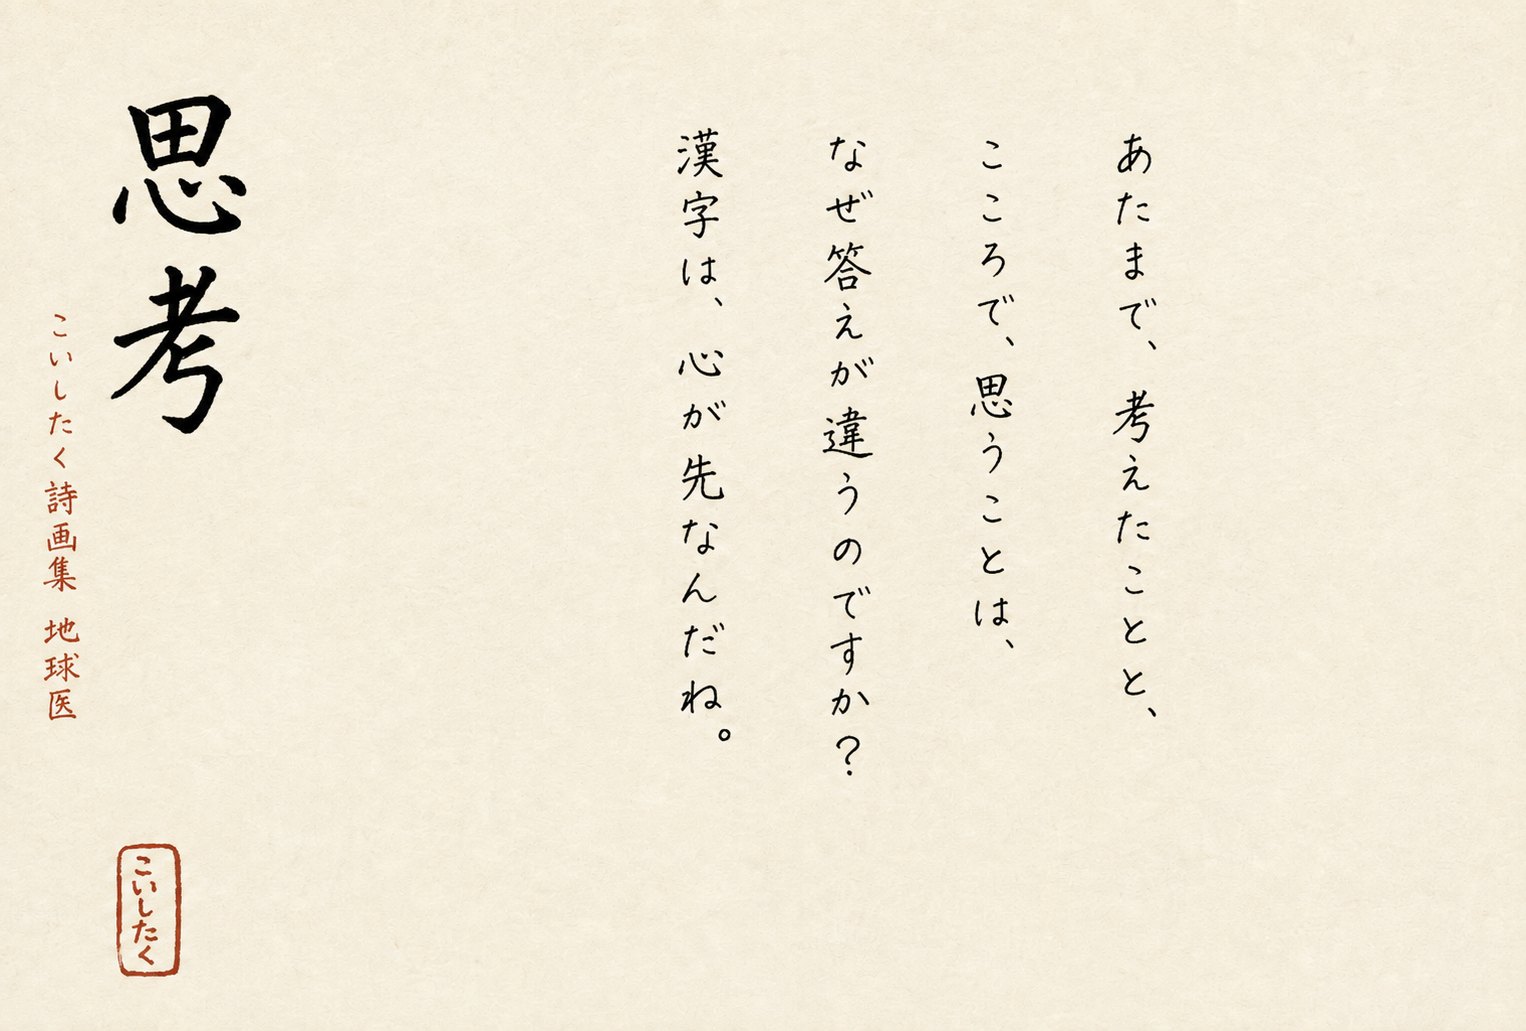 あたまで、考えたことと、
こころで、思うことは、
なぜ答えが違うのですか？
漢字は、心が先なんだね。
思考
こいしたく詩画集 地球医
こいしたく